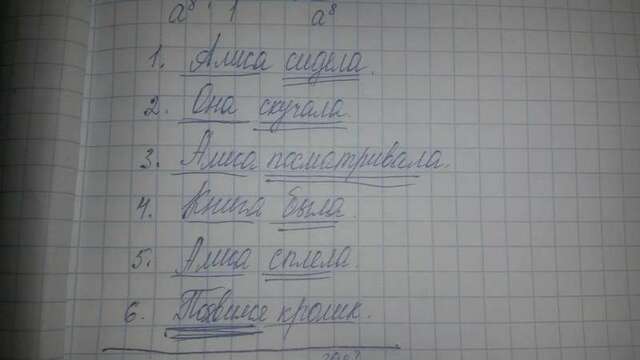 a⁸ · 1 a⁸
1. Алиса сидела.
2. Она скучала.
3. Алиса посматривала.
4. Книга была.
5. Алиса сплела.
6. Появился кролик.